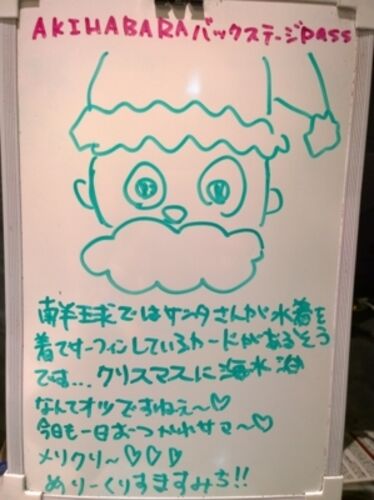 AKIHABARAバックステージpass
南半球ではサンタさんが水着を
着てサーフィンしているカードがあるそう
です...クリスマスに海水浴
なんてオツですねぇ〜♡
今日も一日おつかれサマ〜♡
メリクリ〜♡♡♡
めりーくりすますみち!!